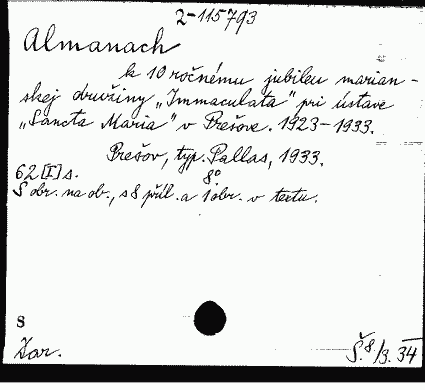 2-115793
Almanach
k 10 ročnému jubileu marian-
skej družiny „Immaculata" pri ústave
„Sancta Maria" v Prešove. 1923-1933.
Prešov, typ. Pallas, 1933.
62 [I] s. 8°
S obr. na ob., s 8 príl. a 1 obr. v textu.
8
Žar. Š. 8/3. 34